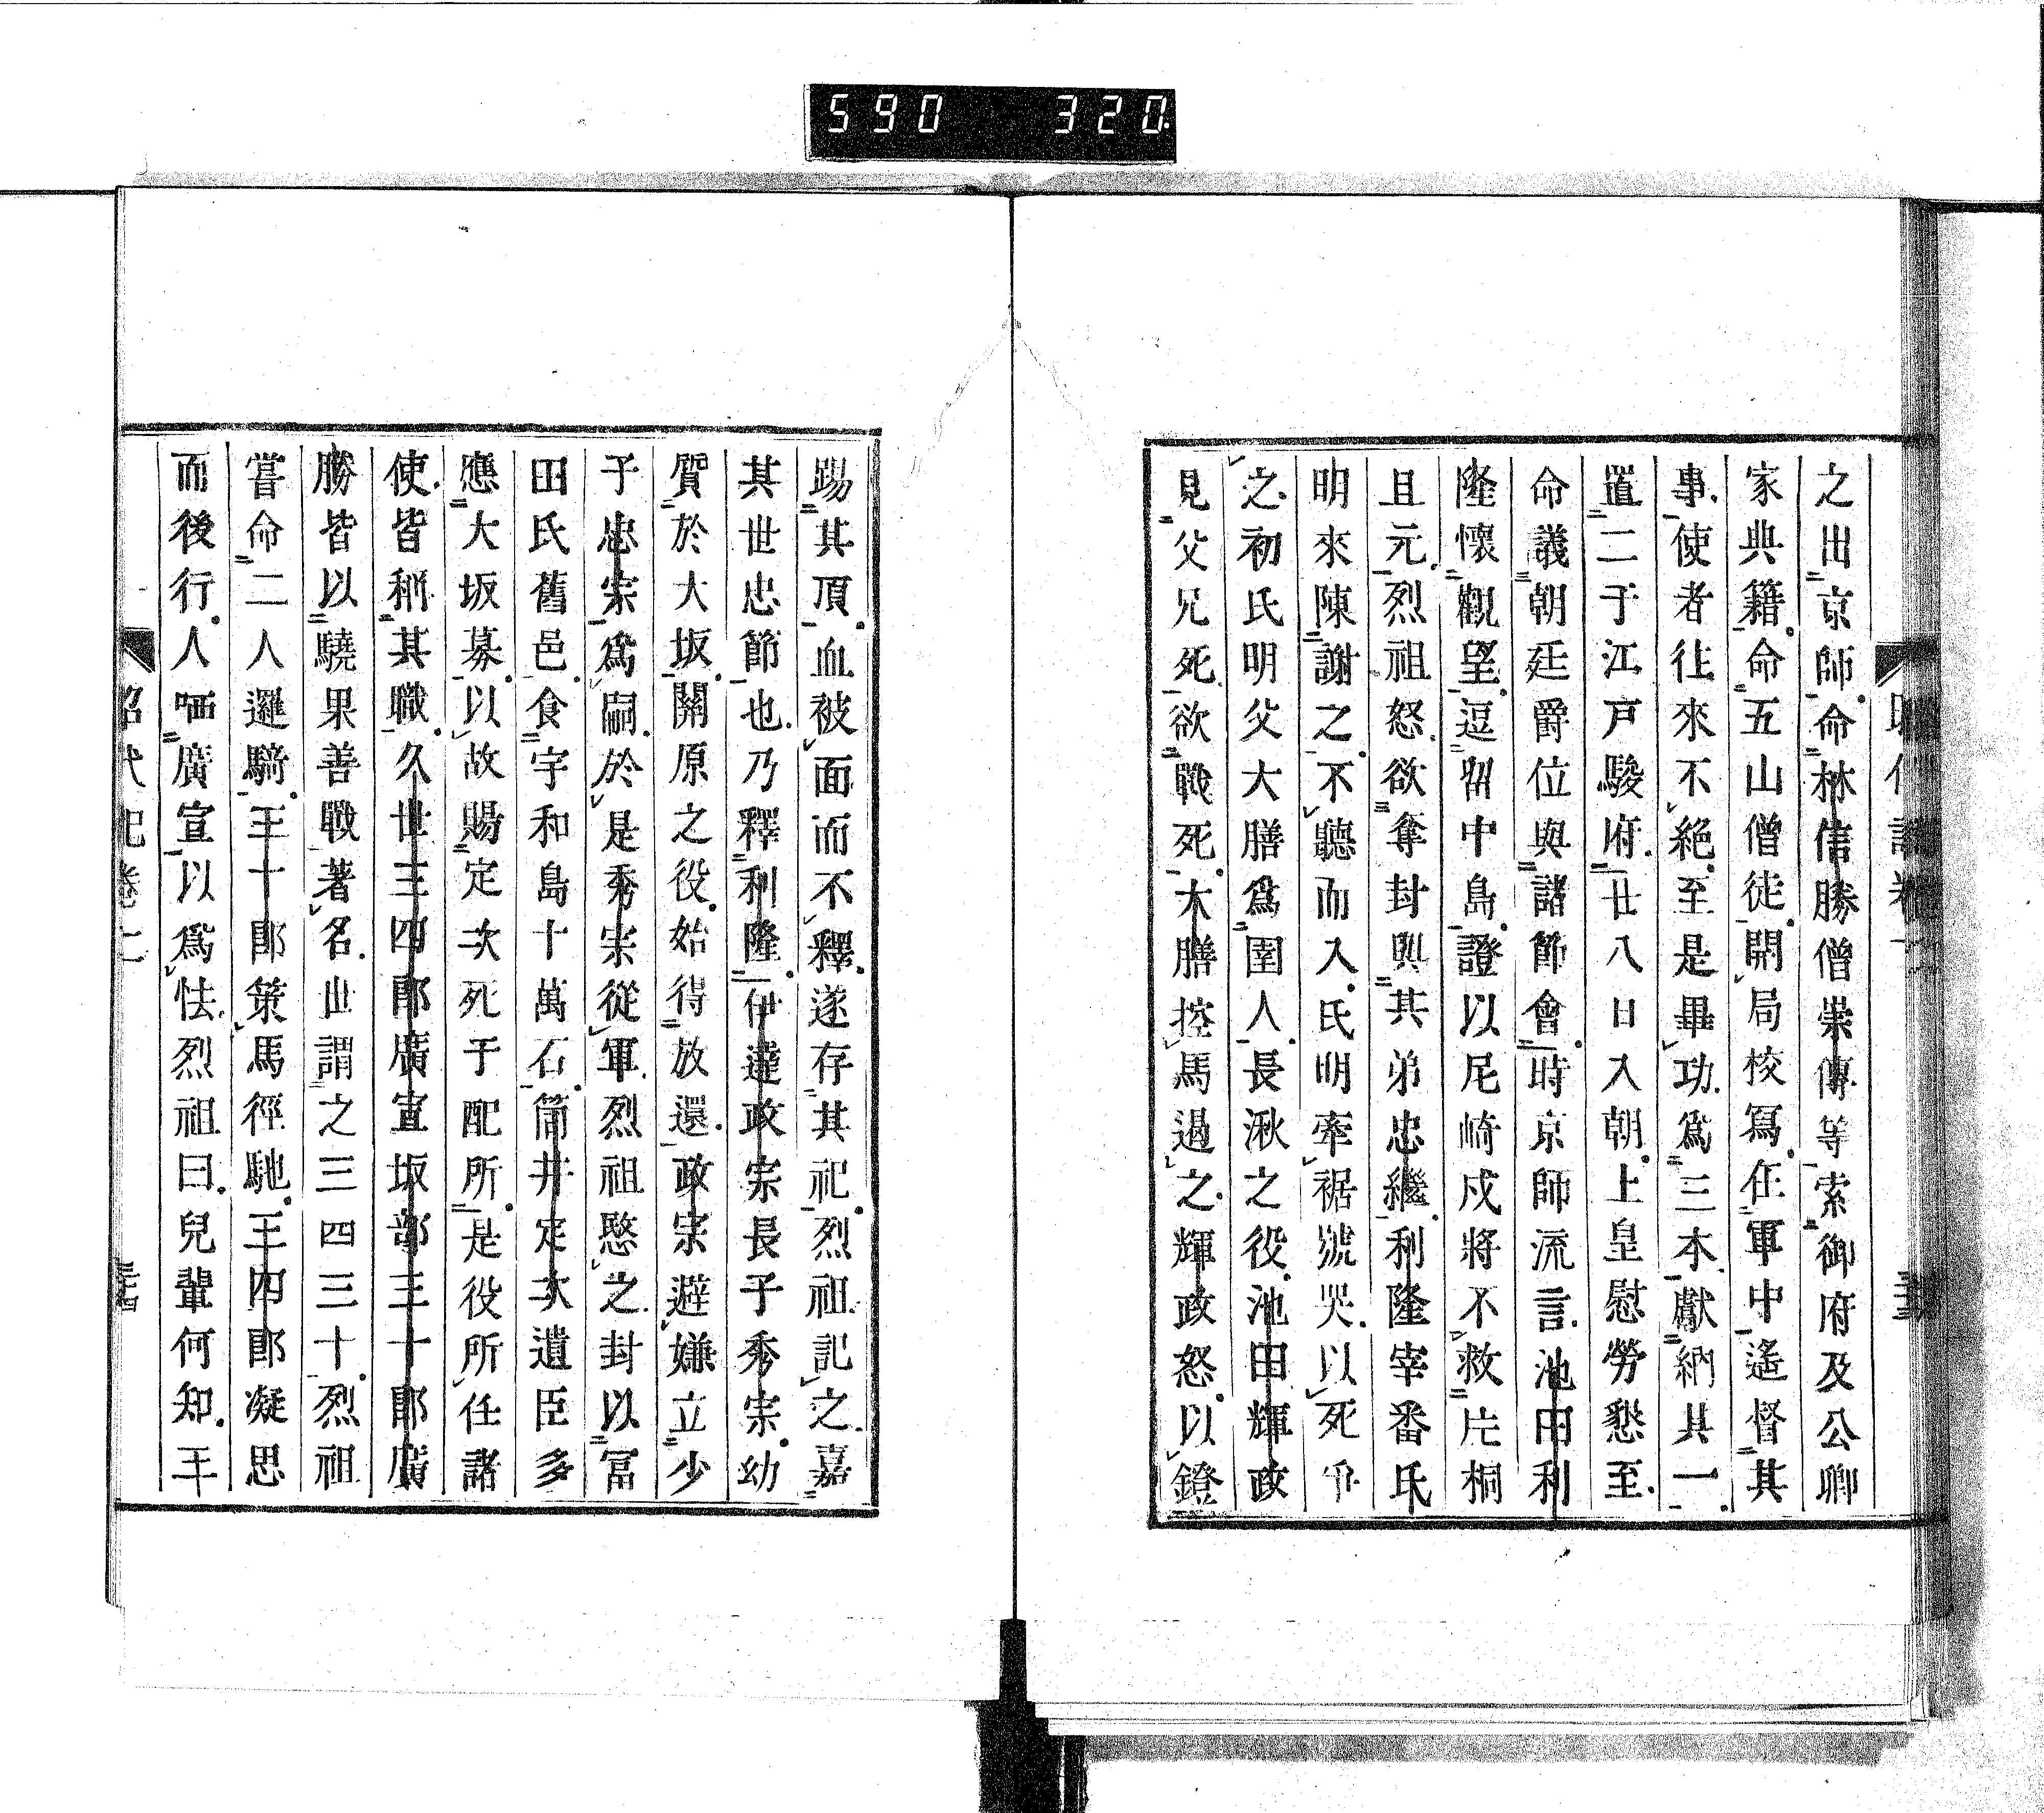 590 320
之出京師命林信勝僧崇傳等索御府及公卿
家典籍命五山僧徒開局校寫任軍中遙督其
事使者往來不絶至是畢功爲三本獻納其一
置二于江戸駿府廿八日入朝上皇慰勞懇至
命議朝廷爵位與諸節會時京師流言池田利
隆懷觀望逗留中島證以尼崎戍將不救片桐
且元烈祖怒欲奪封與其弟忠繼利隆宰番氏
明來陳謝之不聽而入氏明牽裾號哭以死爭
之初氏明父大膳爲圉人長湫之役池田輝政
見父兄死欲戰死大膳控馬過之輝政怒以鐙
踢其頂血被面而不釋遂存其祀烈祖記之嘉
其世忠節也乃釋利隆伊達政宗長子秀宗幼
質於大坂關原之役始得放還政宗避嫌立少
子忠宗爲嗣於是秀宗從軍烈祖愍之封以冨
田氏舊邑食宇和島十萬石筒井定次遺臣多
應大坂募以故賜定次死于配所是役所任諸
使皆稱其職久世三四郎廣宣坂部三十郎廣
勝皆以驍果善戰著名世謂之三四三十烈祖
嘗命二人邏騎三十郎策馬徑馳三四郎凝思
而後行人哂廣宣以爲怯烈祖曰兒輩何知三
昭代記卷二